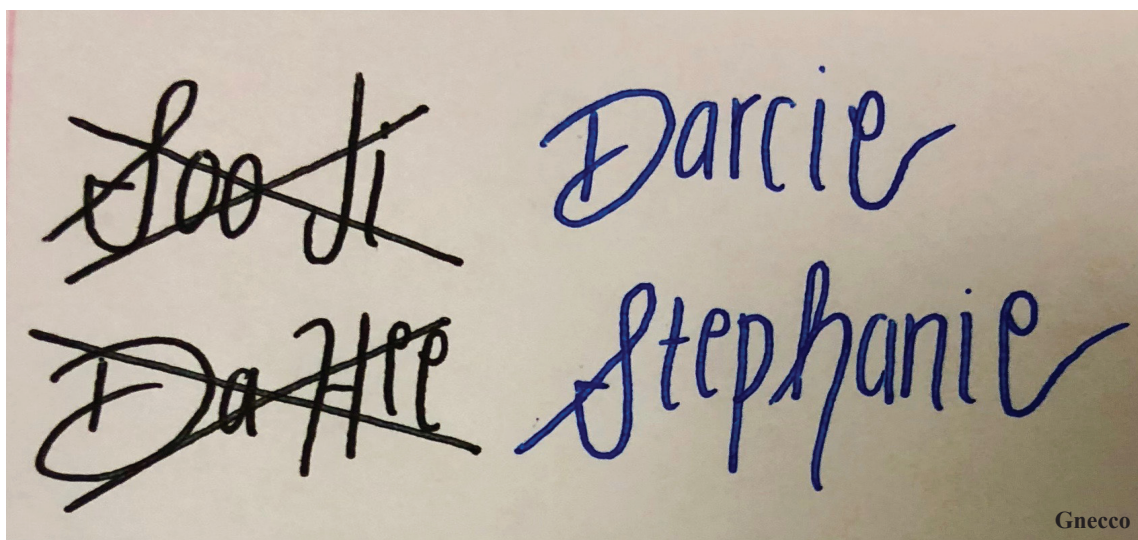 Soo Ji Darcie
Da Hee Stephanie
Gnecco